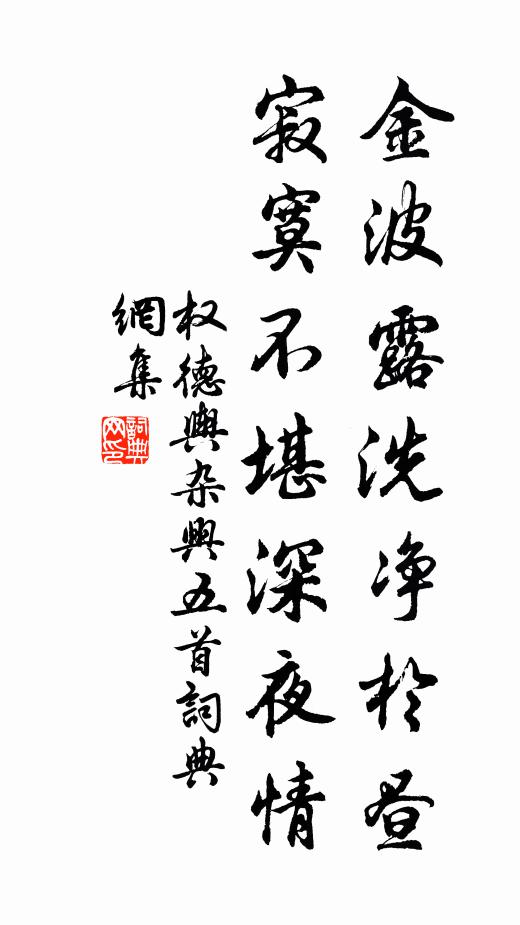 金波露洗净於昼
寂寞不堪深夜情
权德舆杂興五首詞典
網集
詞典
网印